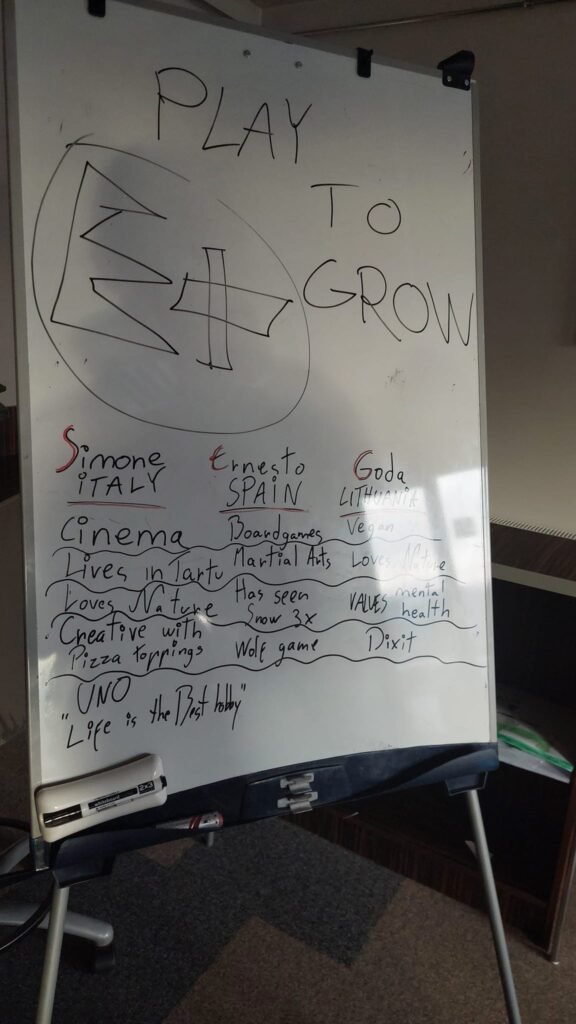 PLAY
TO
GROW
Simone Ernesto Goda
ITALY SPAIN LITHUANIA
Cinema Boardgames Vegan
Lives in Tartu Martial Arts Loves Nature
Loves Nature Has seen Snow 3x VALUES mental health
Creative with Pizza toppings Wolf game Dixit
UNO
"Life is the Best hobby"